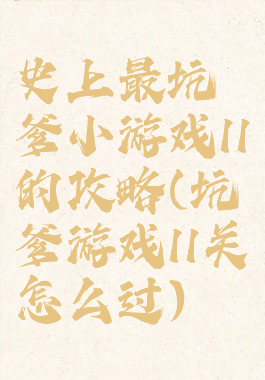 史上最坑
爹小游戏11
的攻略(坑
爹游戏11关
怎么过)